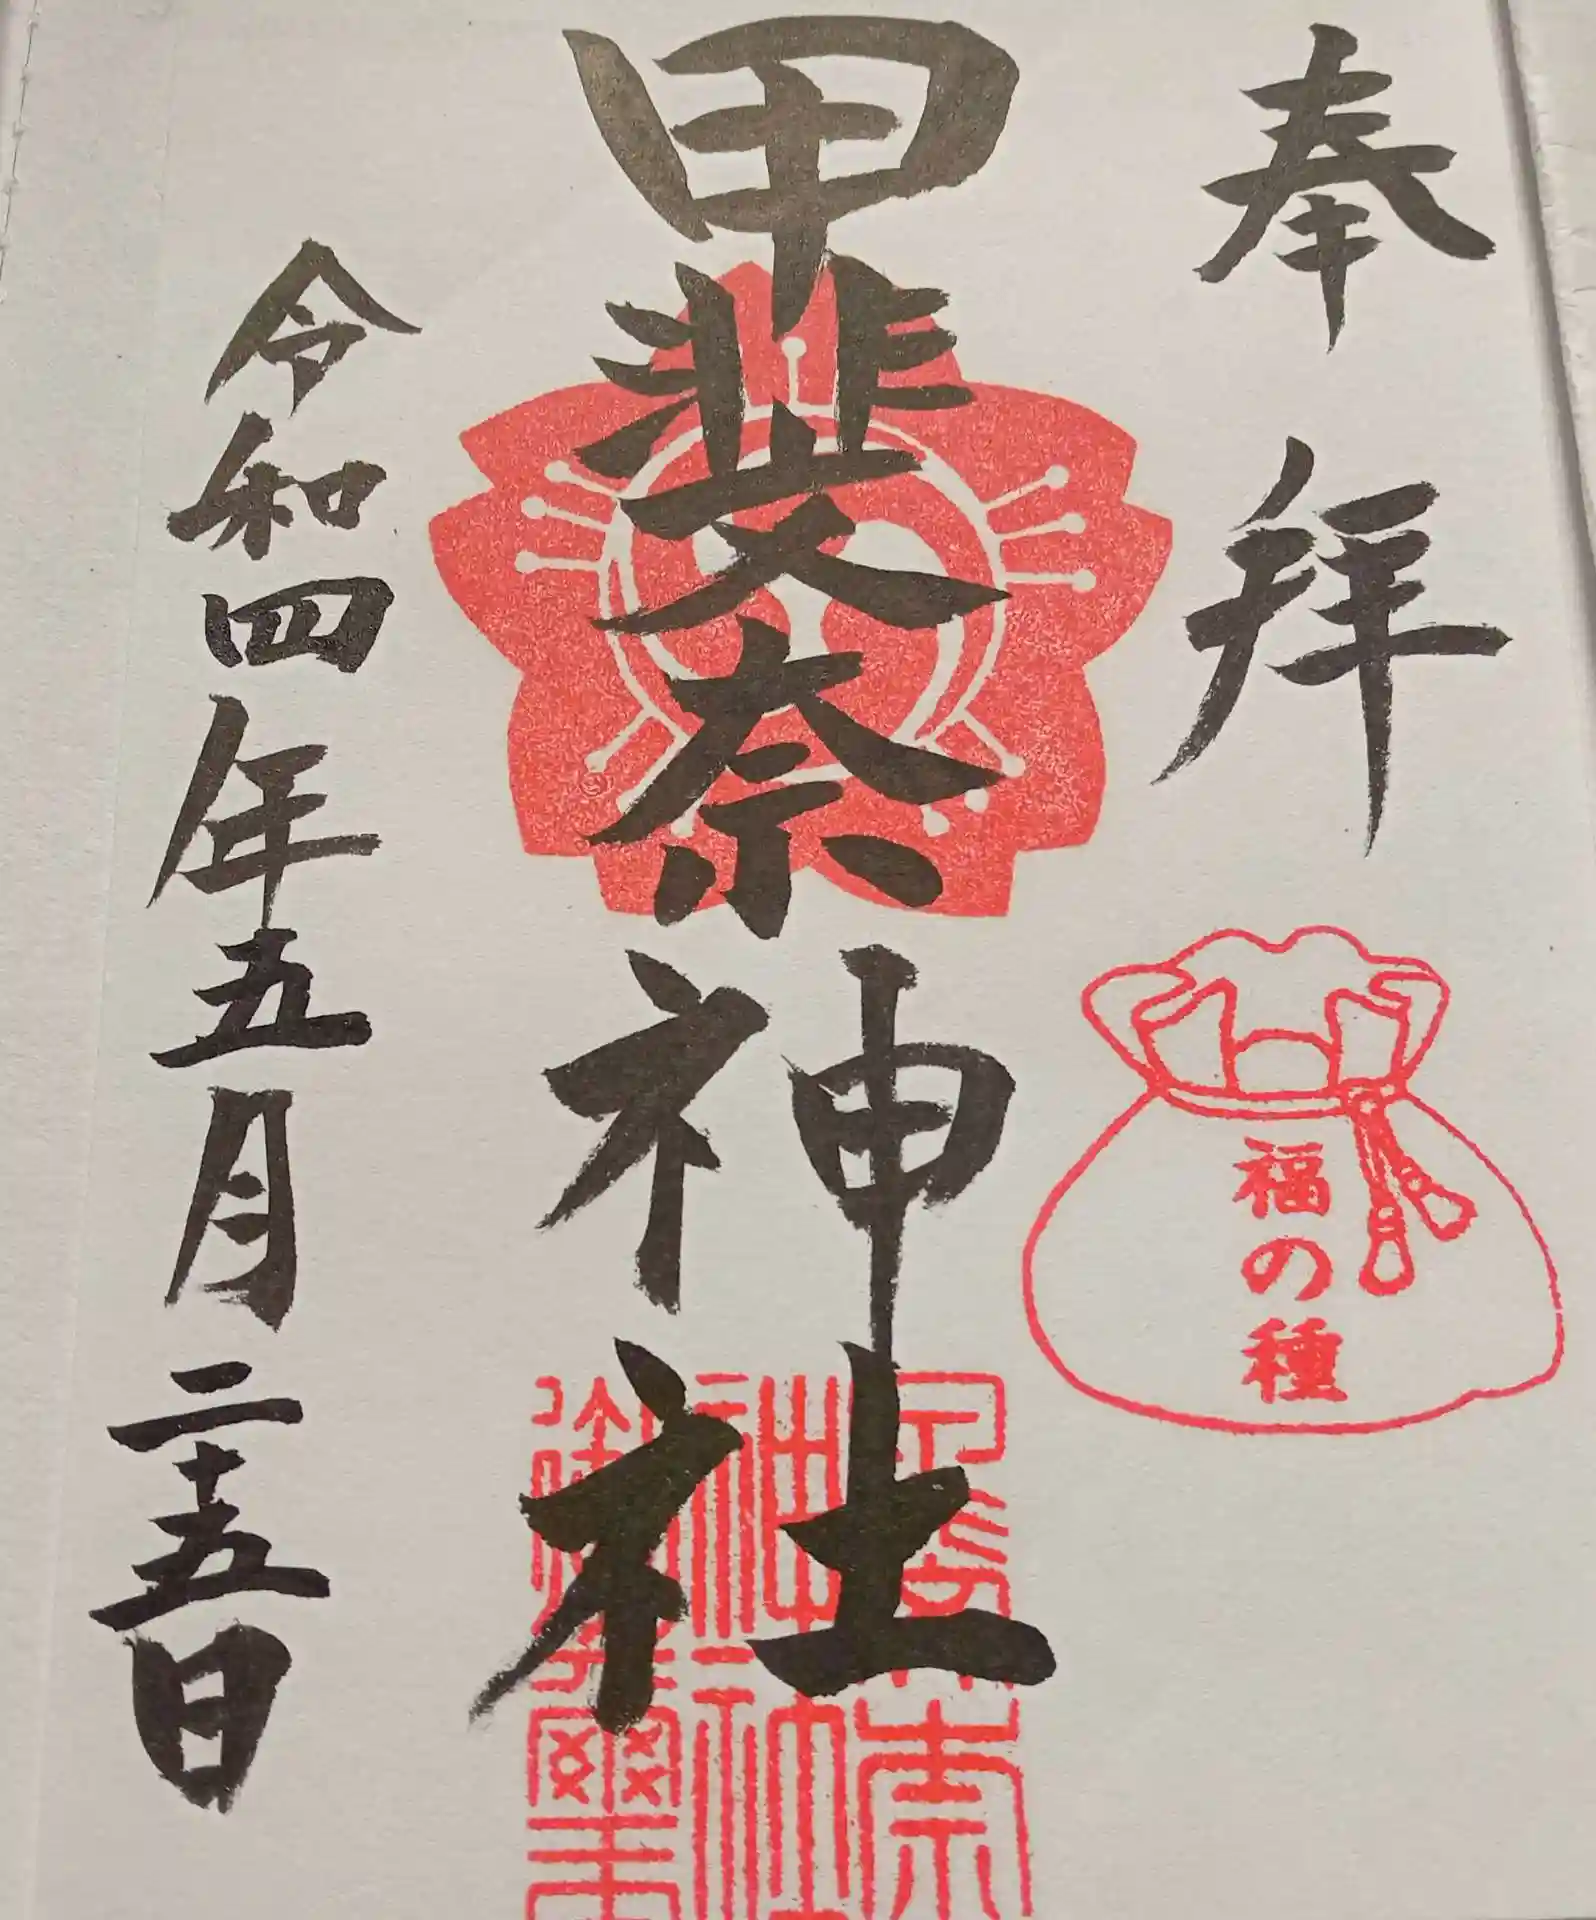 奉拝
福の種
甲斐奈神社
令和四年五月二十五日